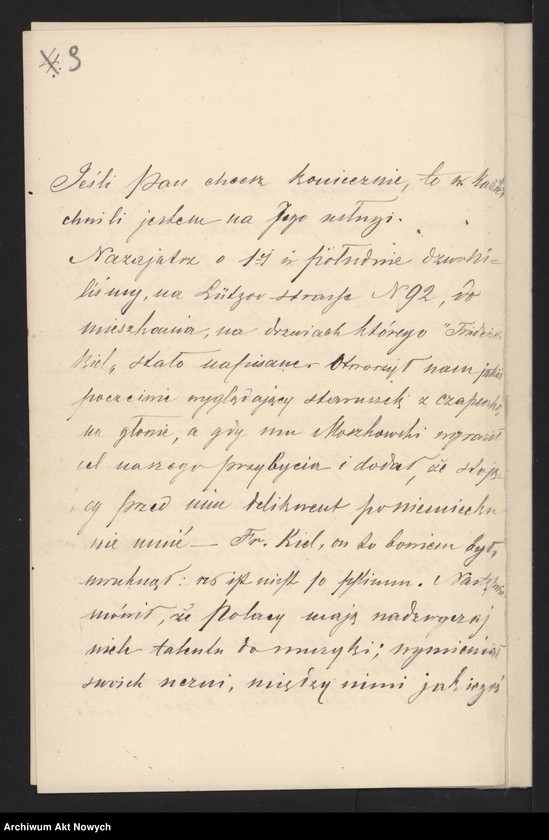 X. 3
Jeśli pan chcesz koniecznie, to w każdej
chwili jestem na Jego usługi.
Nazajutrz o 1ej w południe dzwoni-
liśmy, na Lützov-strasse N 92, do
mieszkania, na drzwiach którego "Friderik
Kiel" stało napisane. Otworzył nam jakiś
poczciwie wyglądający staruszek z czapeczką
na głowie, a gdy mu Moszkowski wyraził
cel naszego przybycia i dodał, że stoją-
cy przed nim delikwent po niemiecku
nie umié — Fr. Kiel, on to bowiem był,
mruknął: es ist nicht so schlimm. Następnie
mówił, że Polacy mają nadzwyczaj
wiele talentu do muzyki; wymieniał
swoich uczni, między nimi jakiegoś
Archiwum Akt Nowych